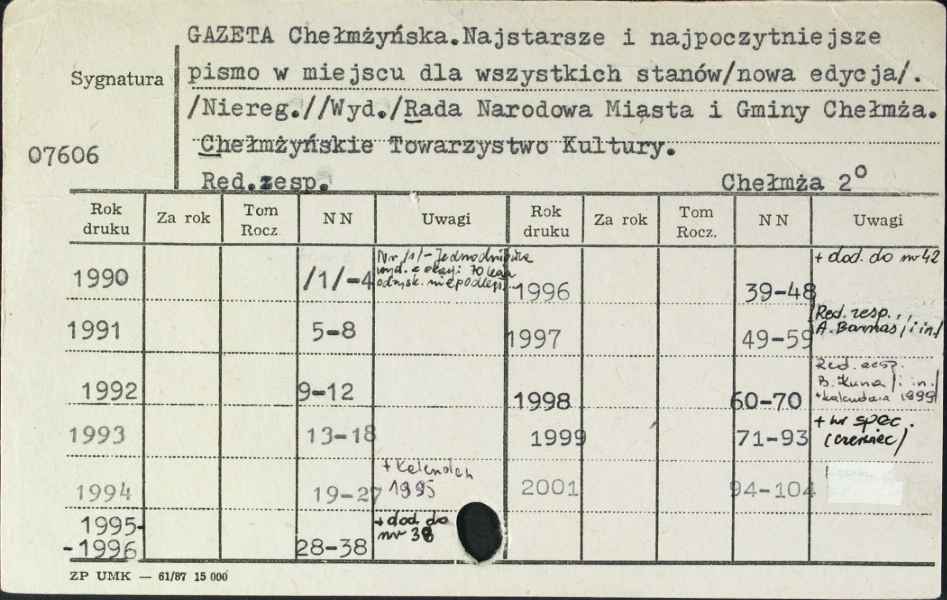 GAZETA Chełmżyńska.Najstarsze i najpoczytniejsze
Sygnatura pismo w miejscu dla wszystkich stanów/nowa edycja/.
/Niereg.//Wyd./Rada Narodowa Miasta i Gminy Chełmża.
07606 Chełmżyńskie Towarzystwo Kultury.
Red.zesp. Chełmża 2°
Rok druku Za rok Tom Rocz. N N Uwagi Rok druku Za rok Tom Rocz. N N Uwagi
1990 /1/-4 Nr /1/ - Jednodniówka
wyd. z okazji 70 lecia
odzysk. niepodległ.
1996 39-48 + dod. do nr 42
1991 5-8
1997 49-59 /Red. zesp.,
A. Barnaś / i in./
1992 9-12
1998 60-70 Red. zesp.
B. / i in./
+ kalendarz 1999
1993 13-18
1999 71-93 + nr spec.
(czerwiec)
1994 19-27 + Kalendarz
1995
2001 94-104
1995-
-1996 28-38 + dod do
nr 38
ZP UMK — 61/87 15 000